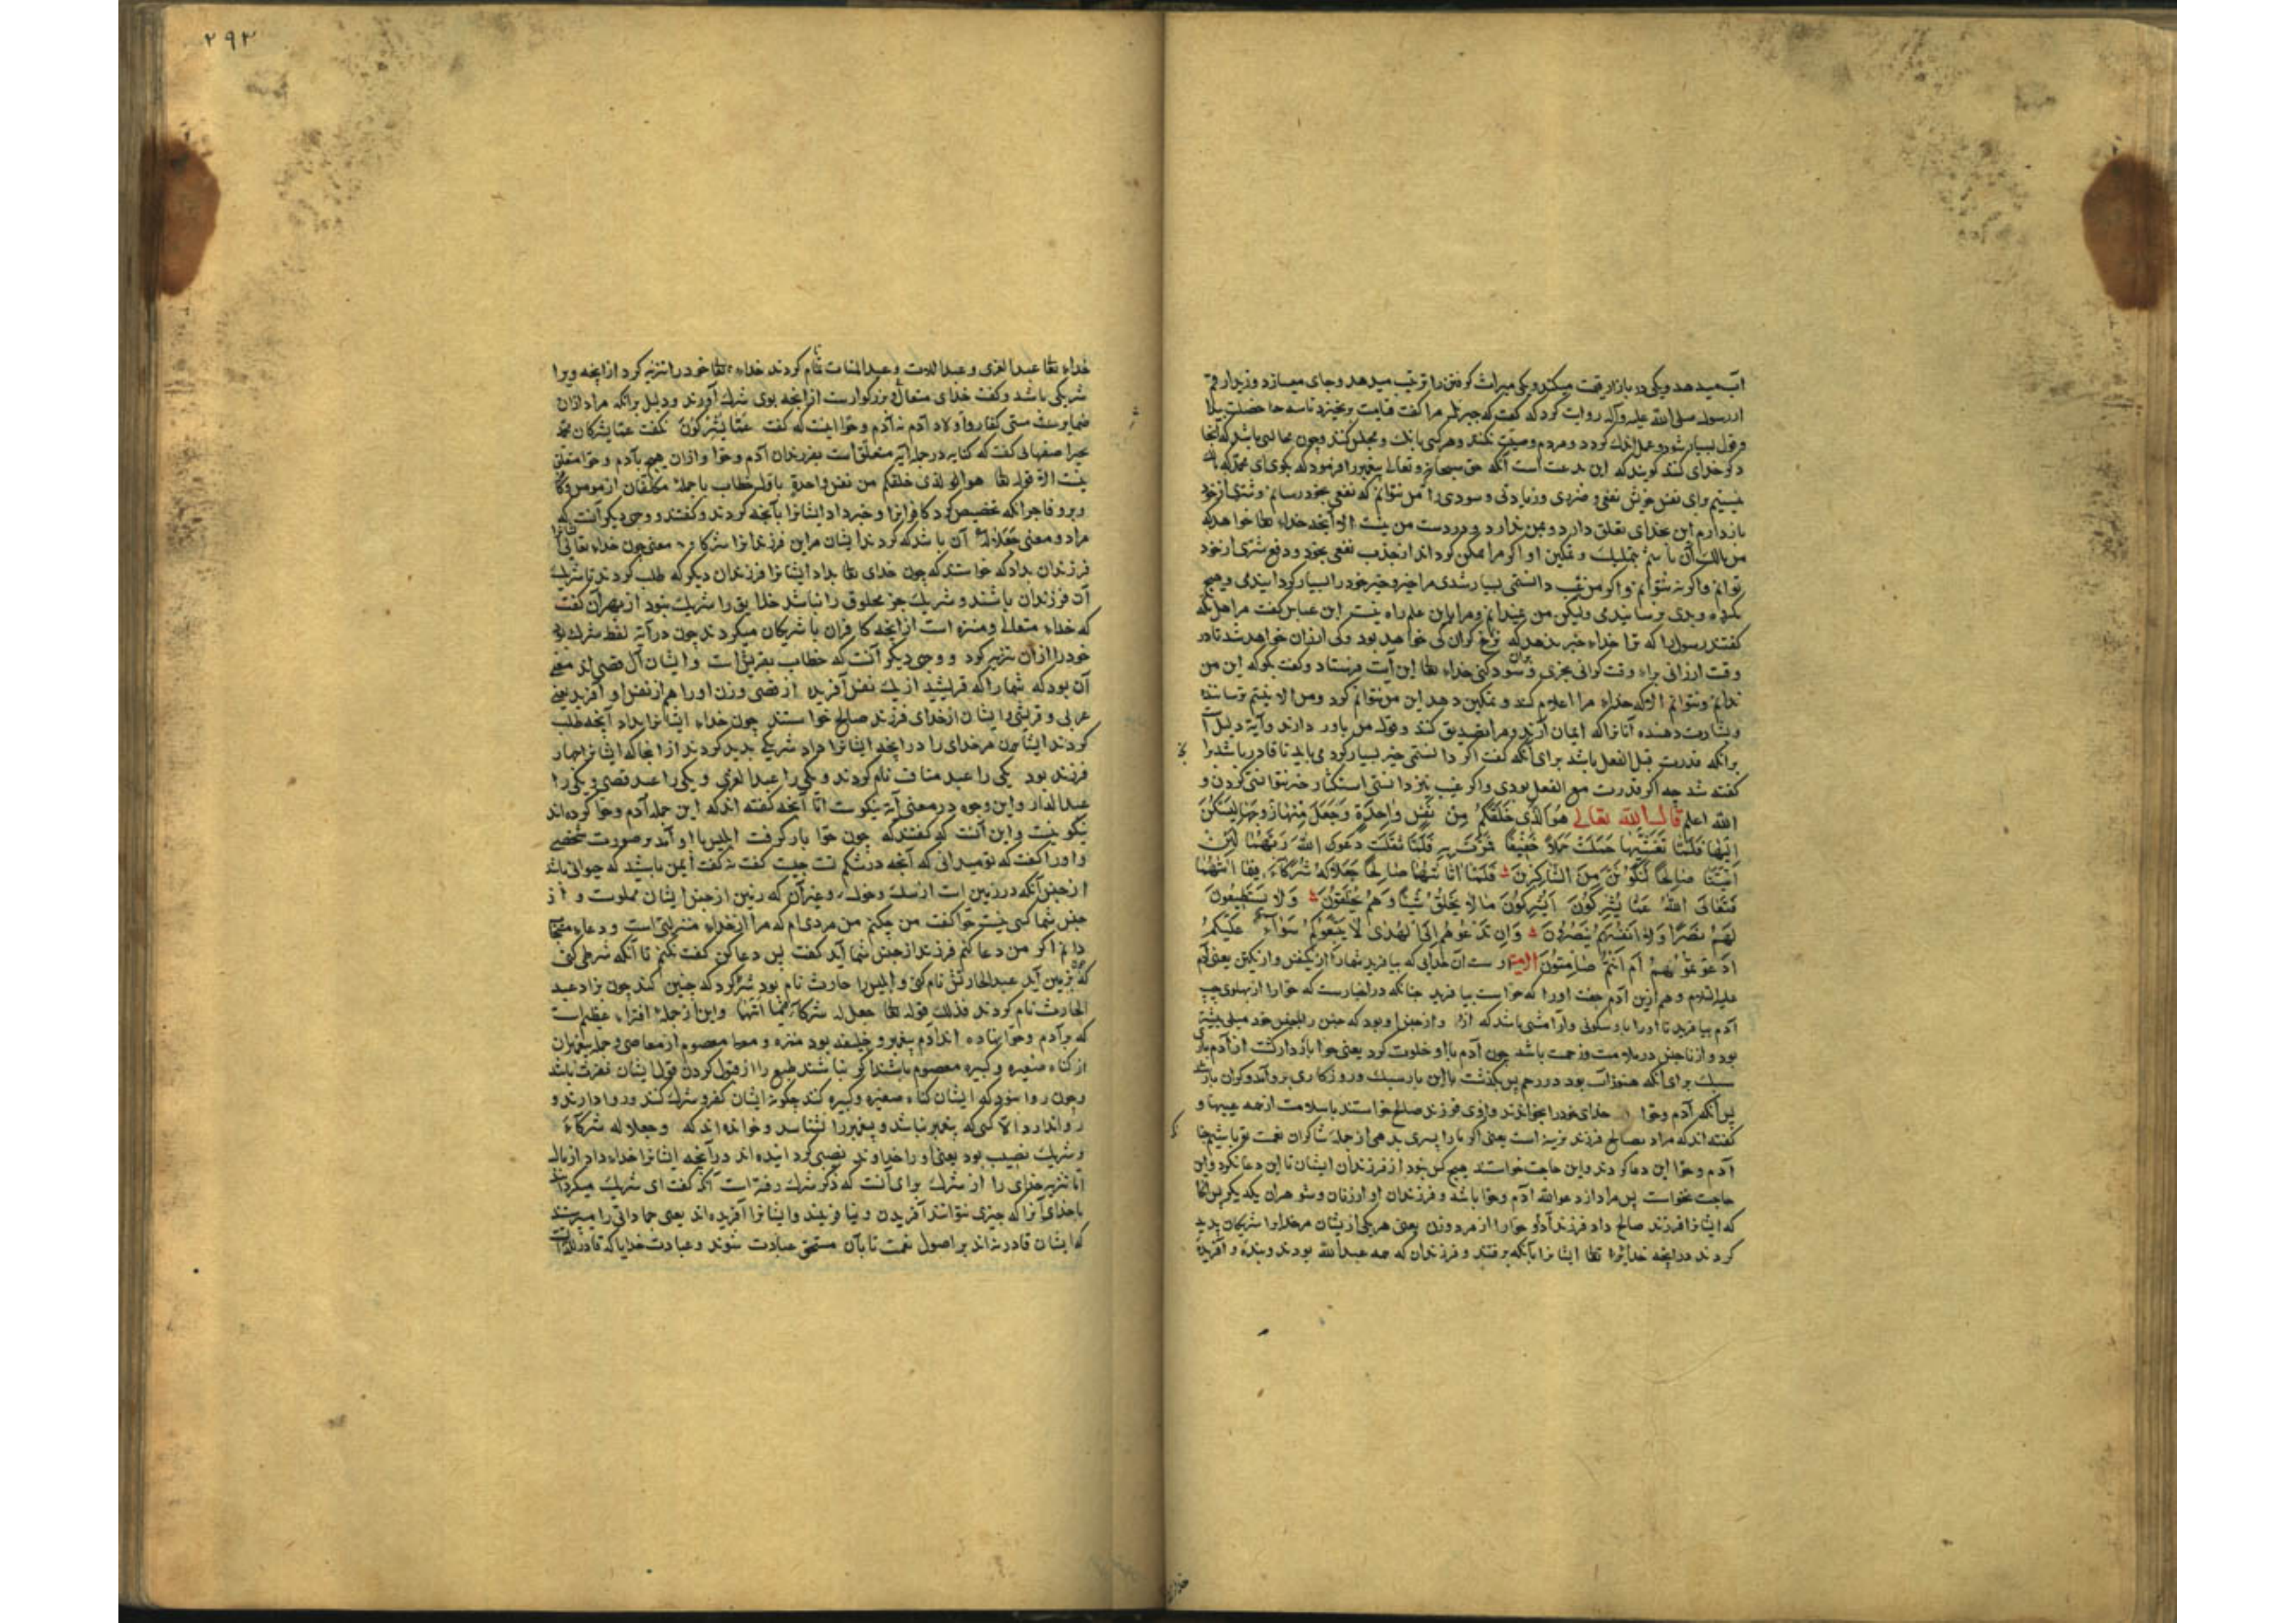 آب میدهد و یکی در بازار قیمت میکند و یکی میراث کوفتن را ترتیب میدهد و جای میسازد و نیز ار
از رسول صلی الله علیه وآله روایت کرد که گفت که جبرئیل مرا گفت قیامت برنخیزد تا سه خصلت
و قول بسیار شود و عمل اندک گردد و مردم وصیت نکنند و هرکسی بانک و مجلس کنند و چون مجالسی باشد که آنجا
ذکر خدای کنند گویند که این بدعت است آنگه حق سبحانه وتعالی پیغمبر را فرمود که بگوی ای محمد که
نیستم برای نفس خویش نفعی و ضرری و زیادتی و سودی را من نتوانم که نفعی بخود رسانم و شری از خود
بازدارم این بخدای تعلق دارد و بمن ندارد و بدست من نیست الا آنچه خدای تعا خواهد که
من مالک آن باشم بتملیک و تمکین او اگر مرا ممکن کرداند از جذب نفعی بخود و دفع شری از خود
توانم و اگر نه نتوانم و اگر من غیب دانستمی بسیار شدی مرا خیر و خیر خود را بسیار کردانیدمی و هیچ
مکروه و بدی بر سانیدمی ولیکن من غیب ندانم و مرا باین علم راه نیست ابن عباس گفت مر اهل مکه
گفتند رسول را که ترا خداء خبر ندهد که نرخ گران کی خواهد بود و کی ارزان خواهد شد تا در
وقت ارزانی براء وقت گرانی بخری و بران سود کنی خداء تعا این آیت فرستاد و گفت بگو که این من
ندانم و نتوانم الا که خداء مرا اعلام کند و تمکین دهد این من نتوانم کرد و من الا نیستم ترساننده
و بشارت دهنده آنانرا که ایمان آرند و مرا تصدیق کنند و قول من باور دارند و آیة دلیل است
برانکه قدرت قبل الفعل باشد برای آنکه گفت اگر دانستمی خیر بسیار کردمی باید تا قادر باشد برا
گفته شد چه اگر قدرت مع الفعل بودی و اگر غیب نیز دانستی استکثار خیر نتوانستی کردن و
الله اعلم قال الله تعالی هُوَ الَّذی خَلَقَکُم مِن نَفسٍ واحِدَةٍ وَجَعَلَ مِنها زَوجَها لِیَسکُنَ
اِلَیها فَلَمّا تَغَشّیها حَمَلَت حَملاً خَفیفًا فَمَرَّت بِهِ فَلَمّا اَثقَلَت دَعَوَا اللهَ رَبَّهُما لَئِن
آتَیتَنا صالِحًا لَنَکُونَنَّ مِنَ الشّاکِرینَ فَلَمّا اتاهُما صالِحًا جَعَلا لَهُ شُرَکاءَ فیما اتیهُما
فَتَعالَی اللهُ عَمّا یُشرِکُونَ اَیُشرِکُونَ مالا یَخلُقُ شَیئًا وَهُم یُخلَقُونَ وَلا یَستَطیعُونَ
لَهُم نَصرًا وَلا اَنفُسَهُم یَنصُرُونَ وَاِن تَدعُوهُم اِلَی الهُدی لا یَتَّبِعُوکُم سَواءٌ عَلَیکُم
اَدَعَوتُمُوهُم اَم اَنتُم صامِتُونَ الآیة او ست آن خدایی که بیافرید شمارا از یک نفس و از یک تن یعنی آدم
علیه السلام و هم ازین آدم جفت او را که حوا ست بیافرید چنانکه در اخبارست که حوا را از پهلوی چپ
آدم بیافرید تا او را با او سکونی و آرامشی باشد که از و از جنس او بود که جنس را بجنس خود میلی بیشتر
بود و از ناجنس در ملامت و زحمت باشد چون آدم با او خلوت کرد یعنی حوا باردار گشت از آدم باری
سبک برای آنکه هنوز آب بود در رحم پس بگذشت با این بار سبک و روزگاری بر و آمد و گران بار شد
پس آنگه آدم و حوا خدای خود را بخواندند و ازو فرزند صالح خواستند با سلامت از همه عیبها و
گفته اند که مراد بصالح فرزند نرینه است یعنی اگر ما را پسری بدهی از جمله شاکران نعمت تو باشیم
آدم و حوا این دعا کردند و این حاجت خواستند هیچ کس نبود از فرزندان ایشان تا این دعا نکرد و این
حاجت نخواست پس مراد از دعوا الله آدم و حوا باشد و فرزندان او از زنان و شوهران یکدیگر پس آنجا
که ایشانرا فرزند صالح داد فرزند آدم و حوا را از مرد و زن یعنی هریکی ازیشان مر خدا را شریکان پدید
کردند در آنچه خدای تعا ایشانرا بآنکه برفتند و فرزندان که همه عبدالله بودند و بنده و آفریده
۲۹۳
خداء تعا عبدالعزی و عبداللات و عبدالمنات نام کردند خداء تعا خود را تنزیه کرد از آنچه ویرا
شریکی باشد و گفت خدای متعال و بزرگوار ست از آنچه بوی شرک آورند و دلیل برانکه مراد ازان
کفار و اولاد آدم نه آدم و حوا اینست که گفت عَمّا یُشرِکُونَ نگفت عمّا یشرکان محمد
بحر اصفهانی گفت که کنایه در جمله آیة متعلق است بفرزندان آدم و حوا و ازان هیچ بآدم و حوا متعلق
نیست الا قوله تعا هو الذی خلقکم من نفس واحدة باول خطاب با جمله مکلفان از مومن و کافر
و بر و فاجر آنکه تخصیص کرد کافرانرا و خبر داد ایشانرا بآنچه کردند و گفتند و وجهی دیگر آنست که
مراد و معنی جَعَلا لَهُ آن باشد که کردند ایشان مر این فرزندانرا شرکا و معنی چون خداء تعالی
فرزندان بداد که خواستند که چون خدای تعا بداد ایشانرا فرزندان دیگر که طلب کردند تا شریک
آن فرزندان باشند و شریک جز مخلوق را نباشد خلایق را شریک بود از بهر آن گفت
که خداء متعالی و منزه است از آنچه کافران با شریکان میکردند چون در آیة لفظ شرک بود
خود را ازان تنزیه کرد و وجهی دیگر آنست که خطاب بقریش است و ایشان آل قصی اند معنی
آن بود که شمارا که قریشید از یک نفس آفرید از قصی و زن او را هم از نفس او آفرید یعنی
عربی و قرشی را ایشان از خدای فرزند صالح خواستند چون خداء ایشانرا بداد آنچه طلب
کردند ایشان مر خدای را در آنچه ایشانرا داد شریکی پدید کردند از آنجا که ایشانرا چهار
فرزند بود یکی را عبد مناف نام کردند و یکی را عبدالعزی و یکی را عبد قصی و یکی را
عبدالدار و این وجوه در معنی آیة نیکوست اما آنچه گفته اند که این حمله آدم و حوا کرده اند
نیکو نیست و این آنست که گفتند که چون حوا بار گرفت ابلیس با او آمد بر صورت شخصی
و او را گفت که تو میدانی که آنچه در شکم تست چیست گفت نه گفت ایمن باشید که حیوانی باشد
از جنس آنکه در زمین است از سگ و خوک و غیر آن که زمین از جنس ایشان مملوست و از
جنس شما کسی نیست حوا گفت من چکنم من مردی ام که مرا از خداء منزلتی است و دعاء مستجاب
دارم اگر من دعا کنم فرزند از جنس شما آید گفت پس دعا کن گفت نکنم تا آنکه شرطی کنی
که چون بزمین آید عبدالحارثش نام کنی و ابلیس را حارث نام بود شرط کرد که چنین کند چون بزاد عبد
الحارث نام کردند فذلک قوله تعا جعلا له شرکاء فیما اتیهما و این از جملة افتراء عظیم است
که بر آدم و حوا نهاده اند آدم پیغمبر و خلیفه بود منزه و معصوم از معاصی و جمله پیغمبران
از گناه صغیره و کبیره معصوم باشند اگر نباشند طبع را از قبول کردن قول ایشان نفرت باشد
و چون روا نبود که ایشان گناه صغیره و کبیره کنند چگونه ایشان کفر و شرک کنند و روا دارند و
روا ندارد الا کسی که پیغمبر نباشد و پیغمبر را نشناسد و خوانده اند که وجعلا له شرکاء
و شریک نصیب بود یعنی او را خداوند نصیبی گردانیده اند در آنچه ایشانرا خداء داد از مال
اما تنزیه خدای را از شرک برای آنست که ذکر شرک رفته است آنگه گفت ای شریک میگردانند
با خدای آنرا که چیزی نتوانند آفریدن و نیافریند و ایشانرا آفریده اند یعنی جماداتی را میپرستند
که ایشان قادر نه اند بر اصول نعمت تا بآن مستحق عبادت شوند و عبادت خدایرا که قادرست